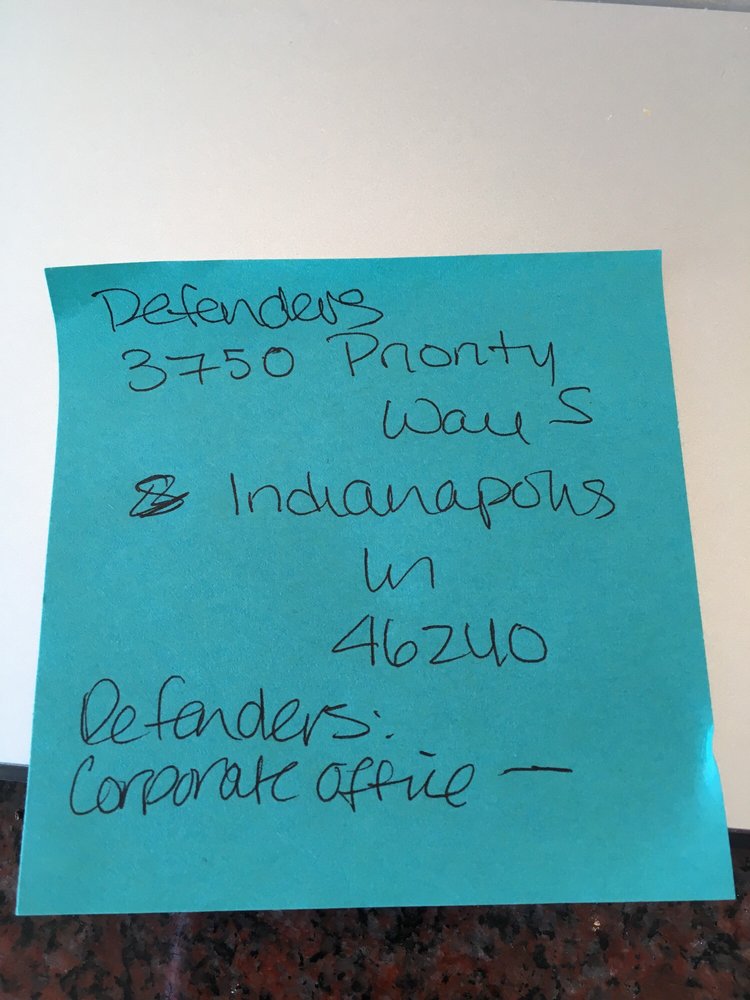 Defenders
3750 Priority
Way S
Indianapolis
In
46240
Defenders:
Corporate office —